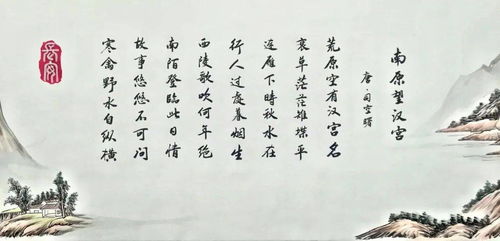 南原望汉宫
唐·司空曙
荒原空有汉宫名
衰草茫茫雉堞平
连雁下时秋水在
行人过尽暮烟生
西陵歌吹何年绝
南陌登临此日情
故事悠悠不可问
寒禽野水自纵横